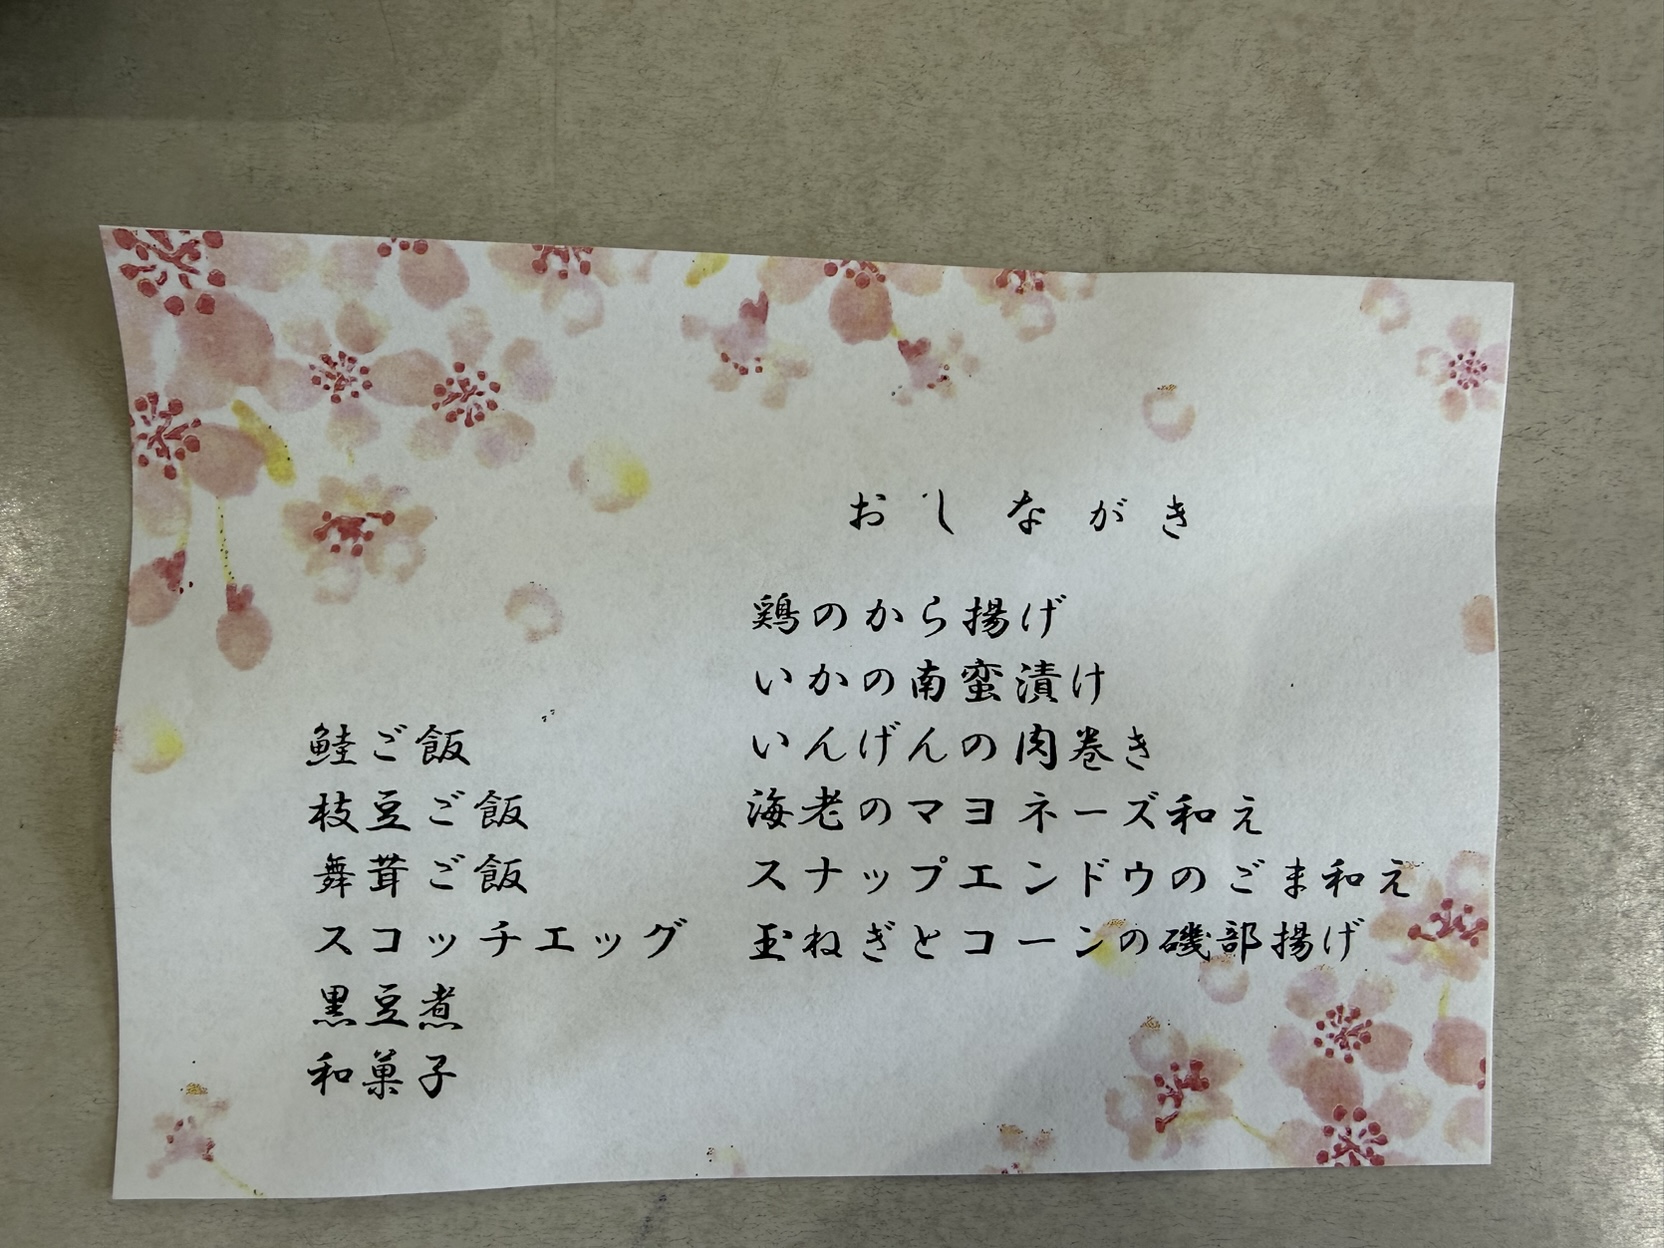 おしながき
鶏のから揚げ
いかの南蛮漬け
いんげんの肉巻き
海老のマヨネーズ和え
スナップエンドウのごま和え
玉ねぎとコーンの磯部揚げ
鮭ご飯
枝豆ご飯
舞茸ご飯
スコッチエッグ
黒豆煮
和菓子